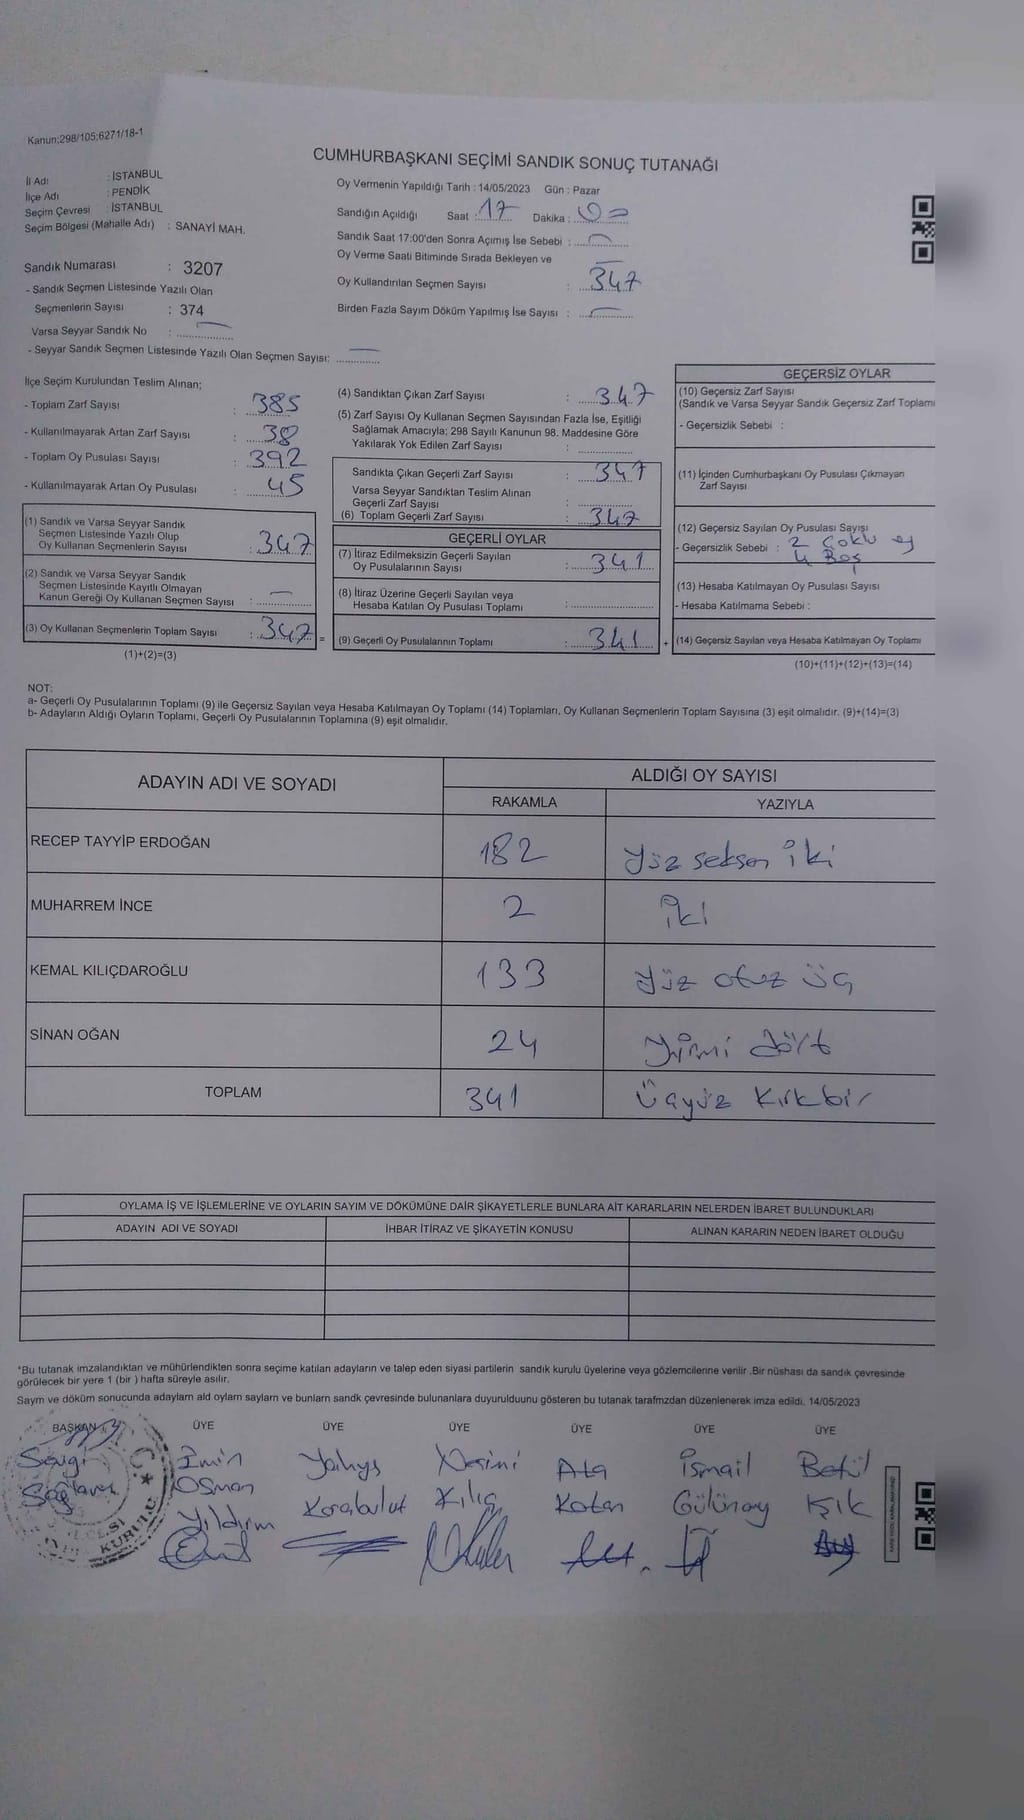 Kanun;298/105;6271/18-1
CUMHURBAŞKANI SEÇİMİ SANDIK SONUÇ TUTANAĞI
İl Adı : İSTANBUL
İlçe Adı : PENDİK
Seçim Çevresi : İSTANBUL
Seçim Bölgesi (Mahalle Adı) : SANAYİ MAH.
Oy Vermenin Yapıldığı Tarih : 14/05/2023 Gün : Pazar
Sandığın Açıldığı Saat : 17 Dakika : 00
Sandık Saat 17:00'den Sonra Açımış İse Sebebi :
Oy Verme Saati Bitiminde Sırada Bekleyen ve
Oy Kullandırılan Seçmen Sayısı : 347
Birden Fazla Sayım Döküm Yapılmış İse Sayısı :
Sandık Numarası : 3207
- Sandık Seçmen Listesinde Yazılı Olan
Seçmenlerin Sayısı : 374
Varsa Seyyar Sandık No :
- Seyyar Sandık Seçmen Listesinde Yazılı Olan Seçmen Sayısı:
İlçe Seçim Kurulundan Teslim Alınan;
- Toplam Zarf Sayısı : 385
- Kullanılmayarak Artan Zarf Sayısı : 38
- Toplam Oy Pusulası Sayısı : 392
- Kullanılmayarak Artan Oy Pusulası : 45
(1) Sandık ve Varsa Seyyar Sandık
Seçmen Listesinde Yazılı Olup
Oy Kullanan Seçmenlerin Sayısı : 347
(2) Sandık ve Varsa Seyyar Sandık
Seçmen Listesinde Kayıtlı Olmayan
Kanun Gereği Oy Kullanan Seçmen Sayısı :
(3) Oy Kullanan Seçmenlerin Toplam Sayısı : 347 =
(1)+(2)=(3)
(4) Sandıktan Çıkan Zarf Sayısı : 347
(5) Zarf Sayısı Oy Kullanan Seçmen Sayısından Fazla İse, Eşitliği
Sağlamak Amacıyla; 298 Sayılı Kanunun 98. Maddesine Göre
Yakılarak Yok Edilen Zarf Sayısı :
Sandıkta Çıkan Geçerli Zarf Sayısı : 347
Varsa Seyyar Sandıktan Teslim Alınan
Geçerli Zarf Sayısı :
(6) Toplam Geçerli Zarf Sayısı : 347
GEÇERLİ OYLAR
(7) İtiraz Edilmeksizin Geçerli Sayılan
Oy Pusulalarının Sayısı : 341
(8) İtiraz Üzerine Geçerli Sayılan veya
Hesaba Katılan Oy Pusulası Toplamı :
(9) Geçerli Oy Pusulalarının Toplamı : 341 +
GEÇERSİZ OYLAR
(10) Geçersiz Zarf Sayısı
(Sandık ve Varsa Seyyar Sandık Geçersiz Zarf Toplamı
- Geçersizlik Sebebi :
(11) İçinden Cumhurbaşkanı Oy Pusulası Çıkmayan
Zarf Sayısı
(12) Geçersiz Sayılan Oy Pusulası Sayısı
- Geçersizlik Sebebi : 2 Çoklu oy
4 Boş
(13) Hesaba Katılmayan Oy Pusulası Sayısı
- Hesaba Katılmama Sebebi :
(14) Geçersiz Sayılan veya Hesaba Katılmayan Oy Toplamı
(10)+(11)+(12)+(13)=(14)
NOT:
a- Geçerli Oy Pusulalarının Toplamı (9) ile Geçersiz Sayılan veya Hesaba Katılmayan Oy Toplamı (14) Toplamları, Oy Kullanan Seçmenlerin Toplam Sayısına (3) eşit olmalıdır. (9)+(14)=(3)
b- Adayların Aldığı Oyların Toplamı, Geçerli Oy Pusulalarının Toplamına (9) eşit olmalıdır.
ADAYIN ADI VE SOYADI ALDIĞI OY SAYISI
RAKAMLA YAZIYLA
RECEP TAYYİP ERDOĞAN 182 Yüz seksen iki
MUHARREM İNCE 2 İki
KEMAL KILIÇDAROĞLU 133 Yüz otuz üç
SİNAN OĞAN 24 Yirmi dört
TOPLAM 341 Üçyüz Kırkbir
OYLAMA İŞ VE İŞLEMLERİNE VE OYLARIN SAYIM VE DÖKÜMÜNE DAİR ŞİKAYETLERLE BUNLARA AİT KARARLARIN NELERDEN İBARET BULUNDUKLARI
ADAYIN ADI VE SOYADI İHBAR İTİRAZ VE ŞİKAYETİN KONUSU ALINAN KARARIN NEDEN İBARET OLDUĞU
*Bu tutanak imzalandıktan ve mühürlendikten sonra seçime katılan adayların ve talep eden siyasi partilerin sandık kurulu üyelerine veya gözlemcilerine verilir .Bir nüshası da sandık çevresinde
görülecek bir yere 1 (bir ) hafta süreyle asılır.
Sayım ve döküm sonucunda adaylarn ald oylarn saylarn ve bunlarn sandk çevresinde bulunanlara duyurulduunu gösteren bu tutanak tarafmzdan düzenlenerek imza edildi. 14/05/2023
BAŞKAN ÜYE ÜYE ÜYE ÜYE ÜYE ÜYE
Sevgi Emin Yahya Nesimi Ata İsmail Betül
Sağlaver Osman Karabulut Kılıç Kotan Gülünay Işık
Yıldırım
T.C.
KURULU